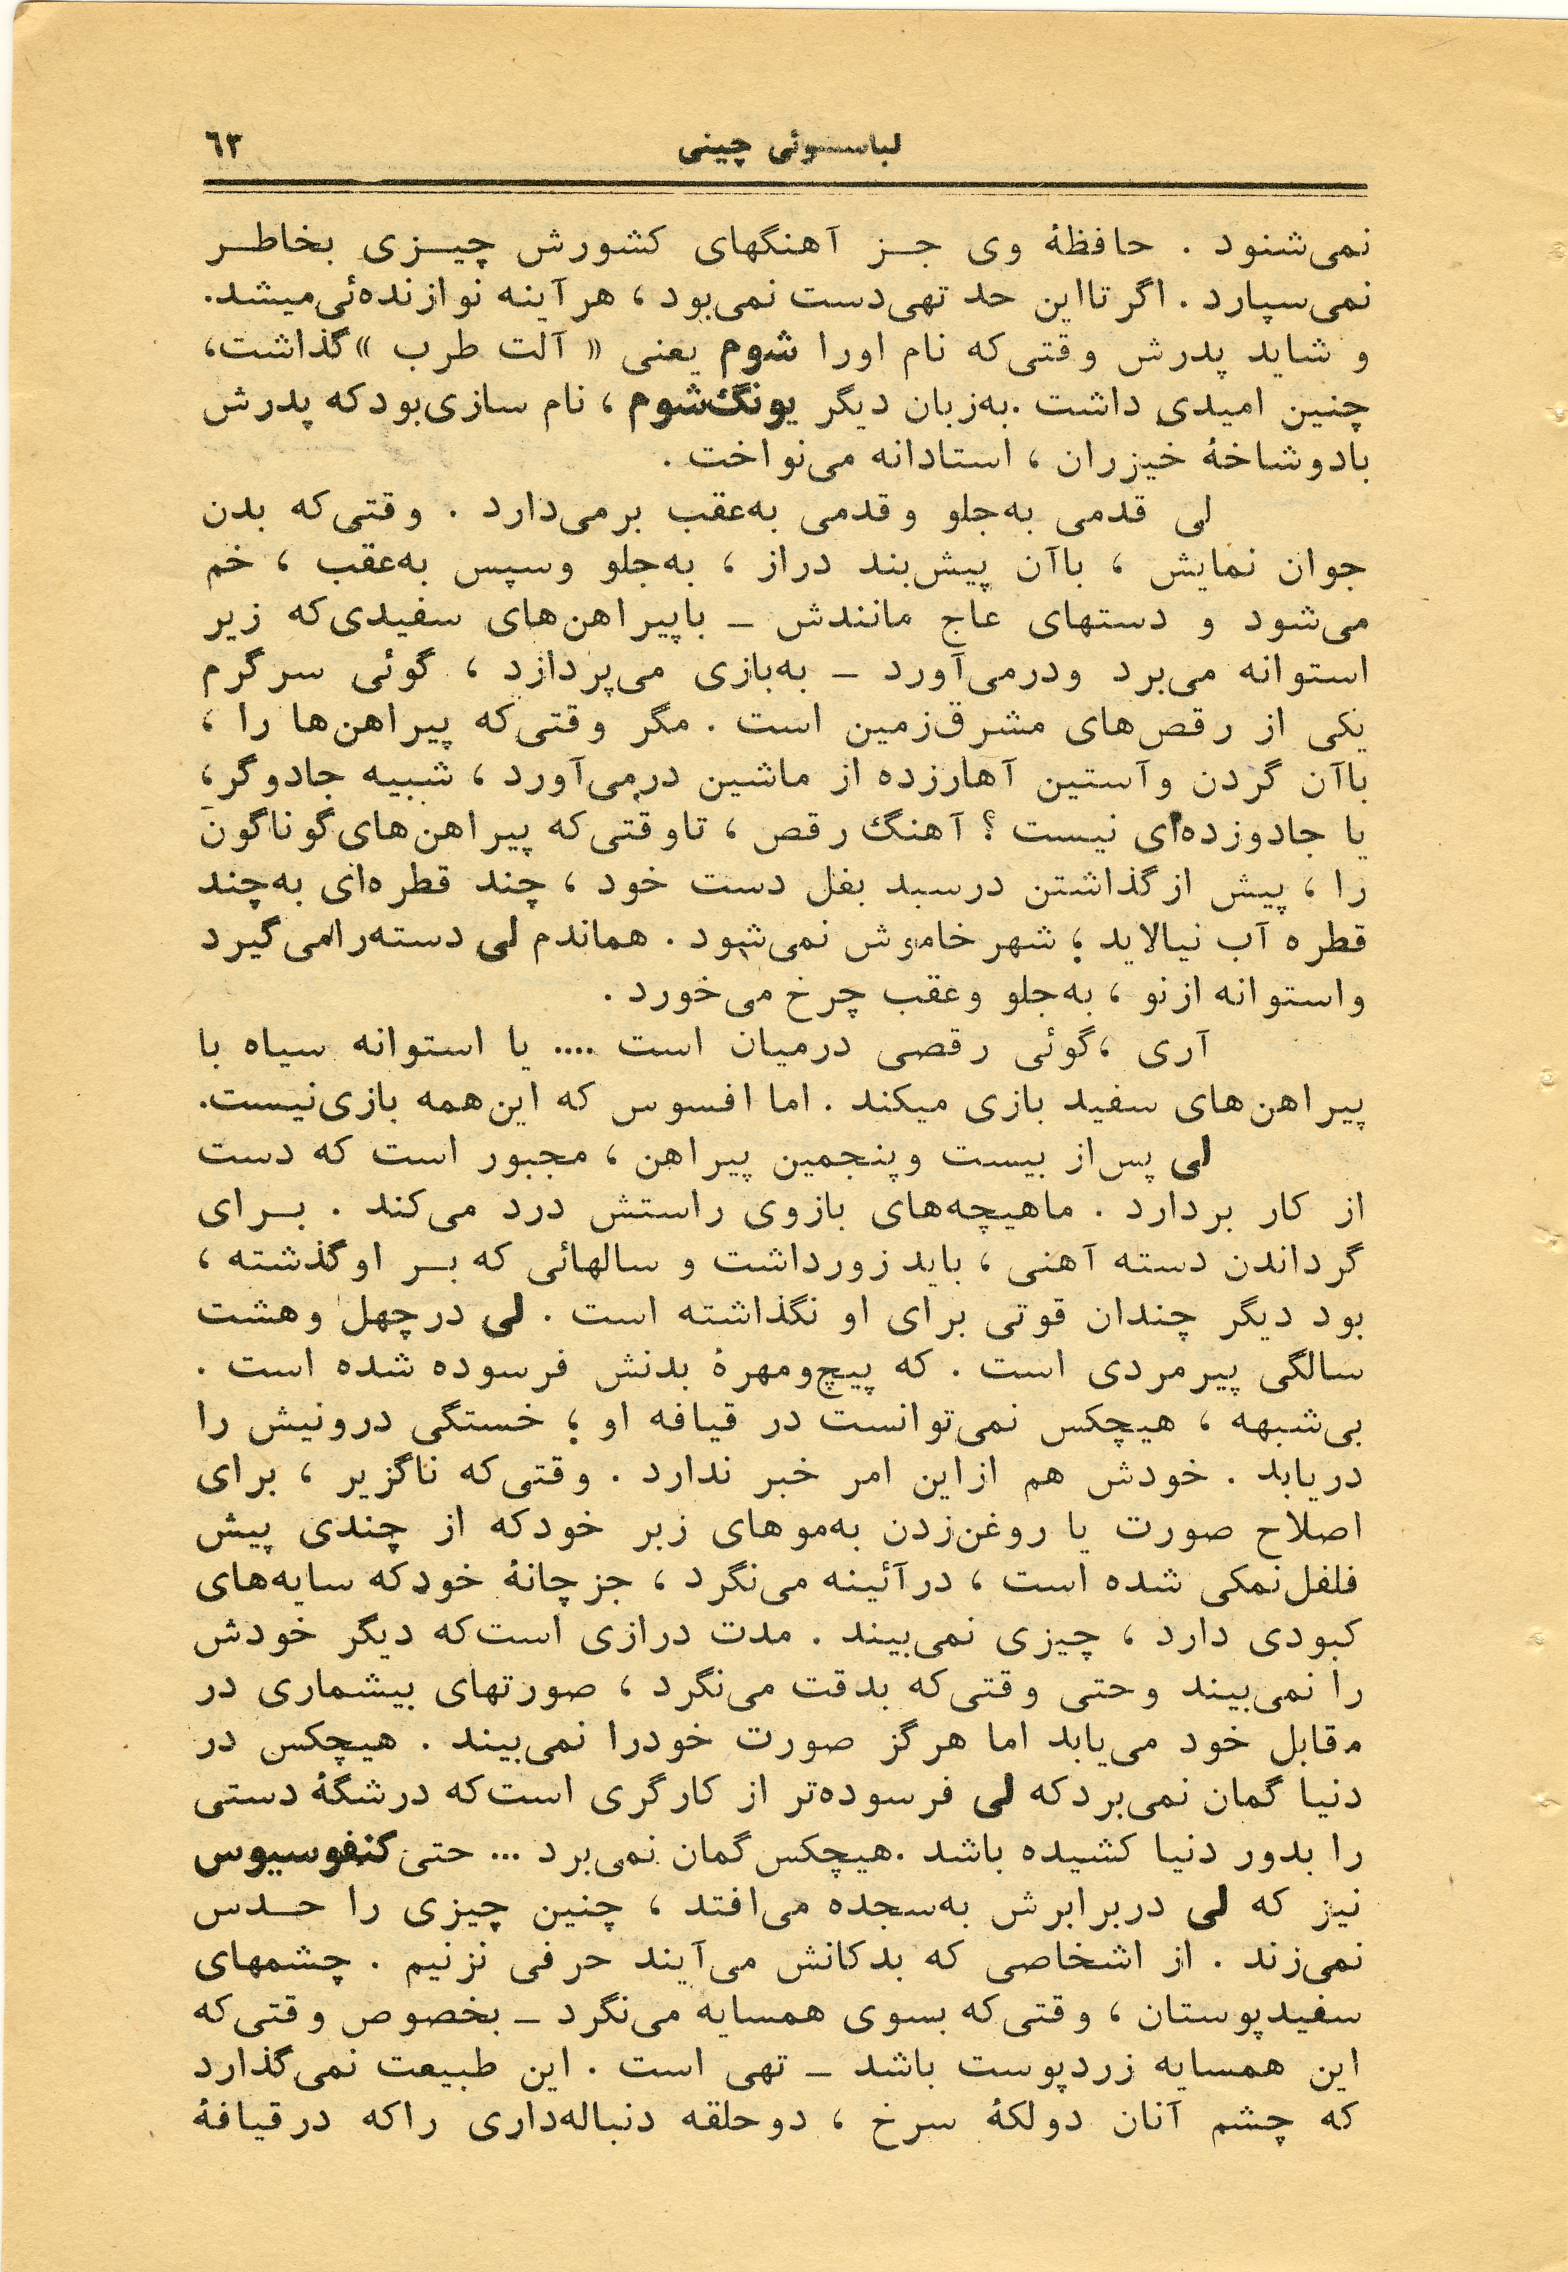 لباسوئی چینی ٦٣
نمی‌شنود . حافظهٔ وی جـز آهنگهای کشورش چیـزی بخاطـر
نمی‌سپارد . اگر تااین حد تهی‌دست نمی‌بود ، هرآینه نوازنده‌ئی‌میشد.
و شاید پدرش وقتی‌که نام اورا شوم یعنی « آلت طرب » گذاشت،
چنین امیدی داشت .به‌زبان دیگر یونگ‌شوم ، نام سازی‌بودکه پدرش
بادوشاخهٔ خیزران ، استادانه می‌نواخت .
لی قدمی به‌جلو وقدمی به‌عقب برمی‌دارد . وقتی‌که بدن
جوان نمایش ، باآن پیش‌بند دراز ، به‌جلو وسپس به‌عقب ، خم
می‌شود و دستهای عاج مانندش ـ باپیراهن‌های سفیدی‌که زیر
استوانه می‌برد ودرمی‌آورد ـ به‌بازی می‌پردازد ، گوئی سرگرم
یکی از رقص‌های مشرق‌زمین است . مگر وقتی‌که پیراهن‌ها را ،
باآن گردن وآستین آهارزده از ماشین درمی‌آورد ، شبیه جادوگر،
یا جادوزده‌ای نیست ؟ آهنگ رقص ، تاوقتی‌که پیراهن‌های‌گوناگون
را ، پیش ازگذاشتن درسبد بغل دست خود ، چند قطره‌ای به‌چند
قطره آب نیالاید ؛ شهر خاموش نمی‌شود . هماندم لی دسته‌رامی‌گیرد
واستوانه ازنو ، به‌جلو وعقب چرخ می‌خورد .
آری ،گوئی رقصی درمیان است .... یا استوانه سیاه با
پیراهن‌های سفید بازی میکند . اما افسوس که این‌همه بازی‌نیست.
لی پس‌از بیست وپنجمین پیراهن ، مجبور است که دست
از کار بردارد . ماهیچه‌های بازوی راستش درد می‌کند . بـرای
گرداندن دسته آهنی ، باید زورداشت و سالهائی که بـر اوگذشته ،
بود دیگر چندان قوتی برای او نگذاشته است . لی درچهل وهشت
سالگی پیرمردی است . که پیچ‌ومهرهٔ بدنش فرسوده شده است .
بی‌شبهه ، هیچکس نمی‌توانست در قیافه او ؛ خستگی درونیش را
دریابد . خودش هم ازاین امر خبر ندارد . وقتی‌که ناگزیر ، برای
اصلاح صورت یا روغن‌زدن به‌موهای زبر خودکه از چندی پیش
فلفل‌نمکی شده است ، درآئینه می‌نگرد ، جزچانهٔ خودکه سایه‌های
کبودی دارد ، چیزی نمی‌بیند . مدت درازی است‌که دیگر خودش
را نمی‌بیند وحتی وقتی‌که بدقت می‌نگرد ، صورتهای بیشماری در
مقابل خود می‌یابد اما هرگز صورت خودرا نمی‌بیند . هیچکس در
دنیا گمان نمی‌بردکه لی فرسوده‌تر از کارگری است‌که درشگهٔ دستی
را بدور دنیا کشیده باشد .هیچکس‌گمان نمی‌برد ... حتی‌کنفوسیوس
نیز که لی دربرابرش به‌سجده می‌افتد ، چنین چیزی را حـدس
نمی‌زند . از اشخاصی که بدکانش می‌آیند حرفی نزنیم . چشمهای
سفیدپوستان ، وقتی‌که بسوی همسایه می‌نگرد ـ بخصوص وقتی‌که
این همسایه زردپوست باشد ـ تهی است . این طبیعت نمی‌گذارد
که چشم آنان دولکهٔ سرخ ، دوحلقه دنباله‌داری راکه درقیافهٔ